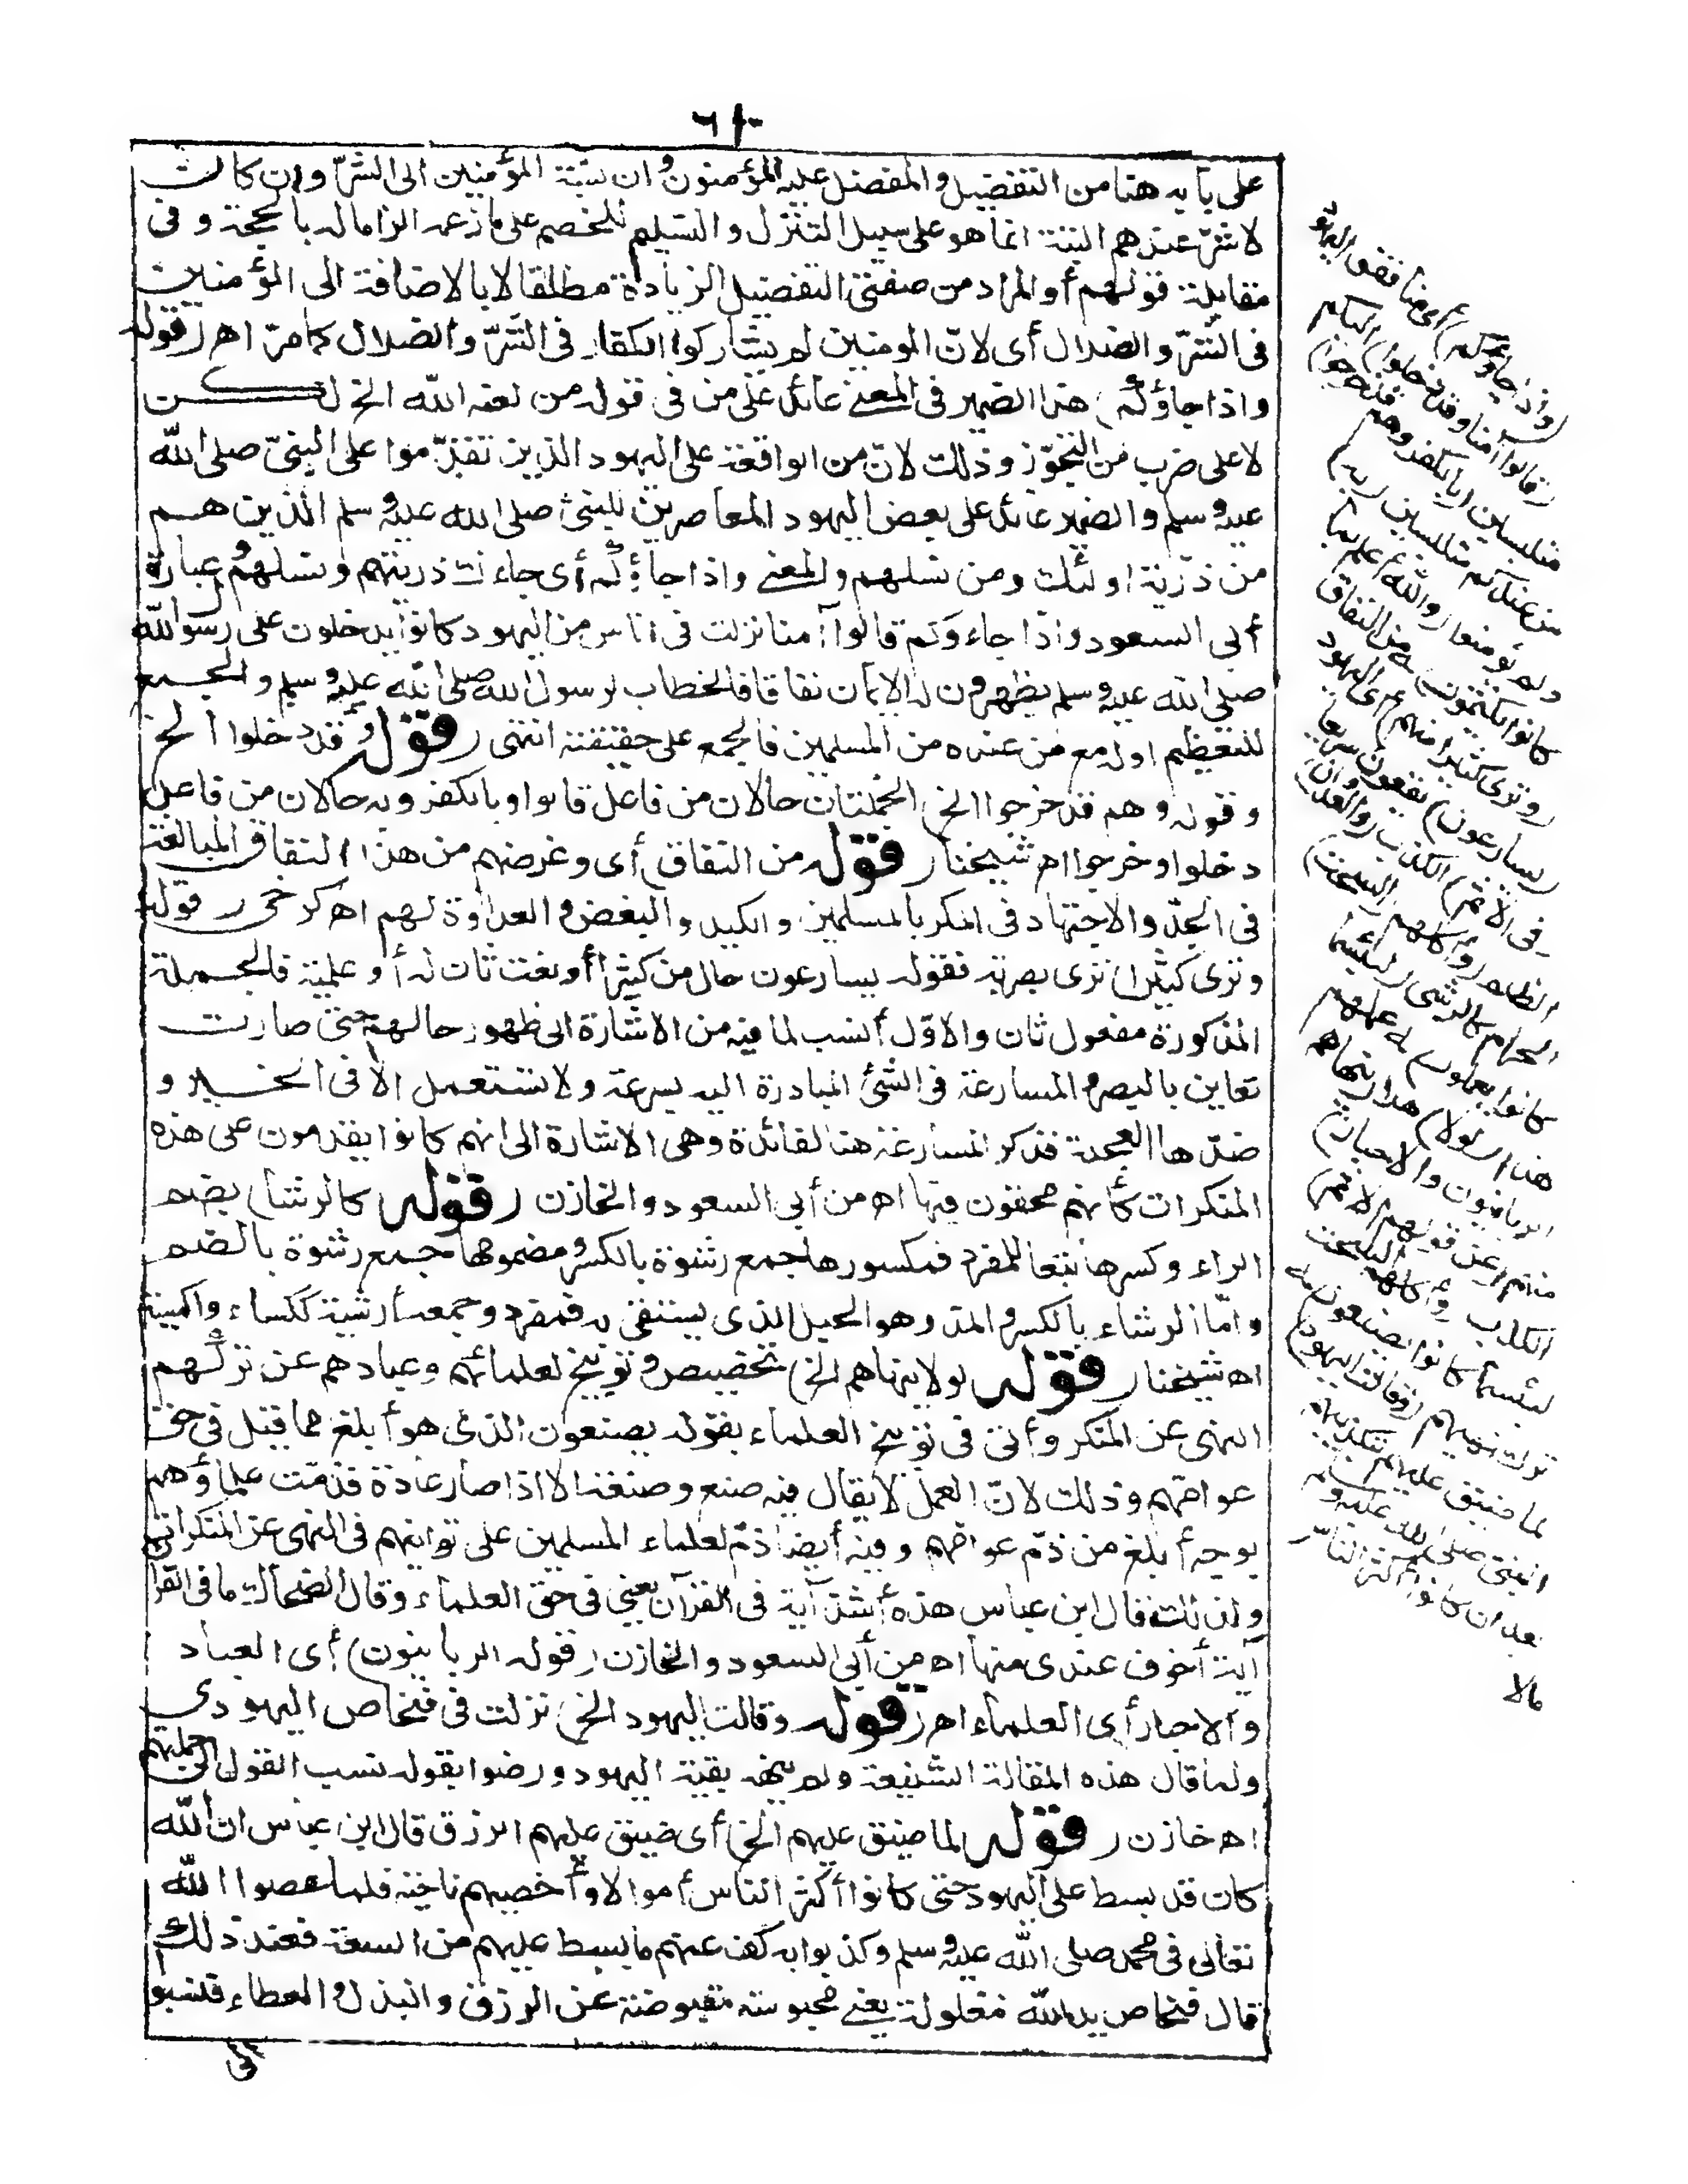 ٦١٠
على بابه هنا من التفضيل والمفضل عليه المؤمنون وان نسبة المؤمنين الى الشرّ وان كانت
لا شرّ عندهم البتة انما هو على سبيل التنزل والتسليم للخصم على ما زعمه الزاما له بالحجة و فى
مقابلة قولهم أو المراد من صفتى التفضيل الزيادة مطلقا لا بالاضافة الى المؤمنين
فى الشرّ والضلال أى لانّ المومنين لم يشاركوا الكفار فى الشرّ والضلال كما مرّ اهـ (قوله
واذا جاؤكم) هذا الضمير فى المعنى عائد على من فى قوله من لعنه الله الخ لكن
لا على ضرب من التجوّز وذلك لانّ من الواقعة على اليهود الذين تقدّموا على النبىّ صلى الله
عليه وسلم والضمير عائد على بعض اليهود المعاصرين للنبىّ صلى الله عليه وسلم الذين هم
من ذرّية اولئك ومن نسلهم والمعنى واذا جاؤكم أى جاءت ذريتهم ونسلهم وعبارة
أبى السعود واذا جاءوكم قالوا آمنا نزلت فى ناس من اليهود كانوا يدخلون على رسول الله
صلى الله عليه وسلم يظهرون له الايمان نفاقا فالخطاب لرسول الله صلى الله عليه وسلم والجمع
للتعظيم اوله مع من عنده من المسلمين فالجمع على حقيقته انتهى (قوله وقد دخلوا الخ
وقوله وهم قد خرجوا الخ) الجملتان حالان من فاعل قالوا وبالكفر وبه حالان من فاعل
دخلوا وخرجوا اهـ شيخنا (قوله من النفاق) أى وغرضهم من هذا النفاق المبالغة
فى الجدّ والاجتهاد فى المكر بالمسلمين والكيد والبغض والعداوة لهم اهـ كرخى (قوله
وترى كثيرا) ترى بصرية فقوله يسارعون حال من كثيرا أو نعت ثان له أو علمية فالجملة
المذكورة مفعول ثان والاوّل أنسب لما فيه من الاشارة الى ظهور حالهم حتى صارت
تعاين بالبصر والمسارعة فى الشئ المبادرة اليه بسرعة ولا تستعمل الا فى الخير و
ضدّها العجلة فذكر المسارعة هنا لفائدة وهى الاشارة الى انهم كانوا يقدمون على هذه
المنكرات كأنهم محقون فيها اهـ من أبى السعود والخازن (قوله كالرشا) بضم
الراء وكسرها تبعا للمفرد فمكسورها جمع رشوة بالكسر ومضمومها جمع رشوة بالضم
وامّا الرشاء بالكسر والمدّ وهو الحبل الذى يستقى به فمفرد وجمعه أرشية ككساء واكسية
اهـ شيخنا (قوله لولا ينهاهم الخ) تحضيض وتوبيخ لعلمائهم وعبادهم عن تركهم
النهى عن المنكر وأتى فى توبيخ العلماء بقوله يصنعون الذى هو أبلغ مما قيل فى حق
عوامّهم وذلك لانّ العمل لا يقال فيه صنع وصنعة الا اذا صار عادة فذمّت علماؤهم
بوجه أبلغ من ذمّ عوامّهم وفيه أيضا ذمّ لعلماء المسلمين على توانيهم فى النهى عن المنكرات
ولذلك قال ابن عباس هذه أشدّ آية فى القرآن يعنى فى حق العلماء وقال الضحاك ما فى القرآ
آية أخوف عندى منها اهـ من أبى السعود والخازن (قوله الربانيون) أى العباد
والاحبار أى العلماء اهـ (قوله وقالت اليهود الخ) نزلت فى فنحاص اليهودى
ولما قال هذه المقالة الشنيعة ولم ينهه بقية اليهود ورضوا بقوله نسب القول الى جملتهم
اهـ خازن (قوله لما ضيق عليهم الخ) أى ضيق عليهم الرزق قال ابن عباس ان الله
كان قد بسط على اليهود حتى كانوا أكثر الناس أموالا وأخصبهم ناحية فلما عصوا الله
تعالى فى محمد صلى الله عليه وسلم وكذبوا به كف عنهم ما بسط عليهم من السعة فعند ذلك
قال فنحاص يد الله مغلولة يعنى محبوسة مقبوضة عن الرزق والبذل والعطاء فنسبو
(واذا جاؤكم) أى منافقو اليهود
(قالوا آمنا وقد دخلوا) اليكم
متلبسين (بالكفر وهم قد خرجوا)
من عندكم متلبسين (به)
ولم يؤمنوا (والله أعلم بما
كانوا يكتمون) ـه من النفاق
(وترى كثيرا منهم) أى اليهود
(يسارعون) يقعون سريعا
(فى الاثم) الكذب (والعدوان)
الظلم (وأكلهم السحت)
الحرام كالرشى (لبئس ما
كانوا يعملون) ـه عملهم
هذا (لولا) هلا (ينهاهم
الربانيون والاحبار)
منهم (عن قولهم الاثم)
الكذب (وأكلهم السحت
لبئس ما كانوا يصنعون) ـه
ترك نهيهم (وقالت اليهود)
لما ضيق عليهم بتكذيبهم
النبىّ صلى الله عليه وسلم
بعد ان كانوا أكثر الناس
مالا